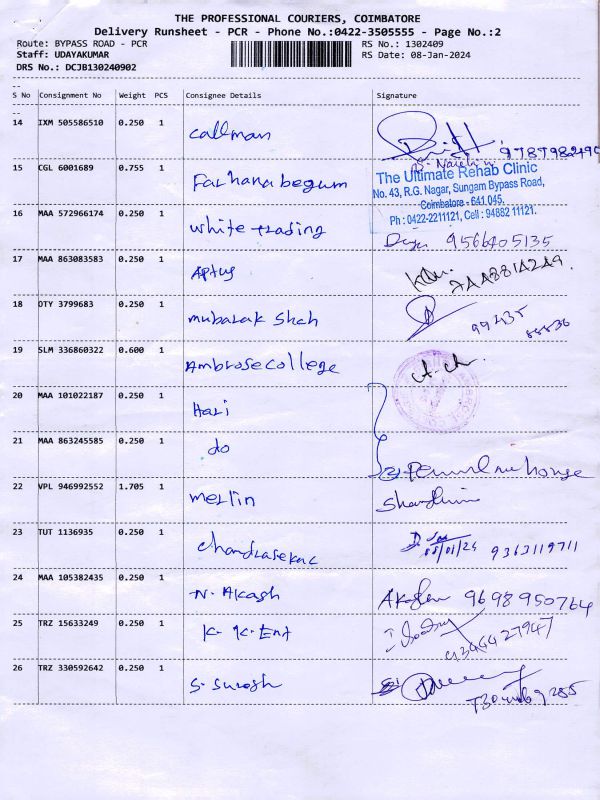 THE PROFESSIONAL COURIERS, COIMBATORE
Delivery Runsheet - PCR - Phone No.:0422-3505555 - Page No.:2
Route: BYPASS ROAD - PCR
RS No.: 1302409
Staff: UDAYAKUMAR
RS Date: 08-Jan-2024
DRS No.: DCJB130240902
S No Consignment No Weight PCS Consignee Details Signature
14 IXM 505586510 0.250 1 Callman
15 CGL 6001689 0.755 1 Farhana begum
The Ultimate Rehab Clinic
No. 43, R.G. Nagar, Sungam Bypass Road,
Coimbatore - 641 045.
Ph : 0422-2211121, Cell : 94882 11121.
16 MAA 572966174 0.250 1 White trading 9566405135
17 MAA 863083583 0.250 1 Aptus
18 OTY 3799683 0.250 1 Mubarak Shah 99435
19 SLM 336860322 0.600 1 Ambrose college
20 MAA 101022187 0.250 1 Hari
21 MAA 863245585 0.250 1 do
22 VPL 946992552 1.705 1 Merlin
23 TUT 1136935 0.250 1 Chandrasekar 08/01/24 9363119711
24 MAA 105382435 0.250 1 N. Akash 9698950764
25 TRZ 15633249 0.250 1 K. K. Ent 9344427947
26 TRZ 330592642 0.250 1 S. Suresh